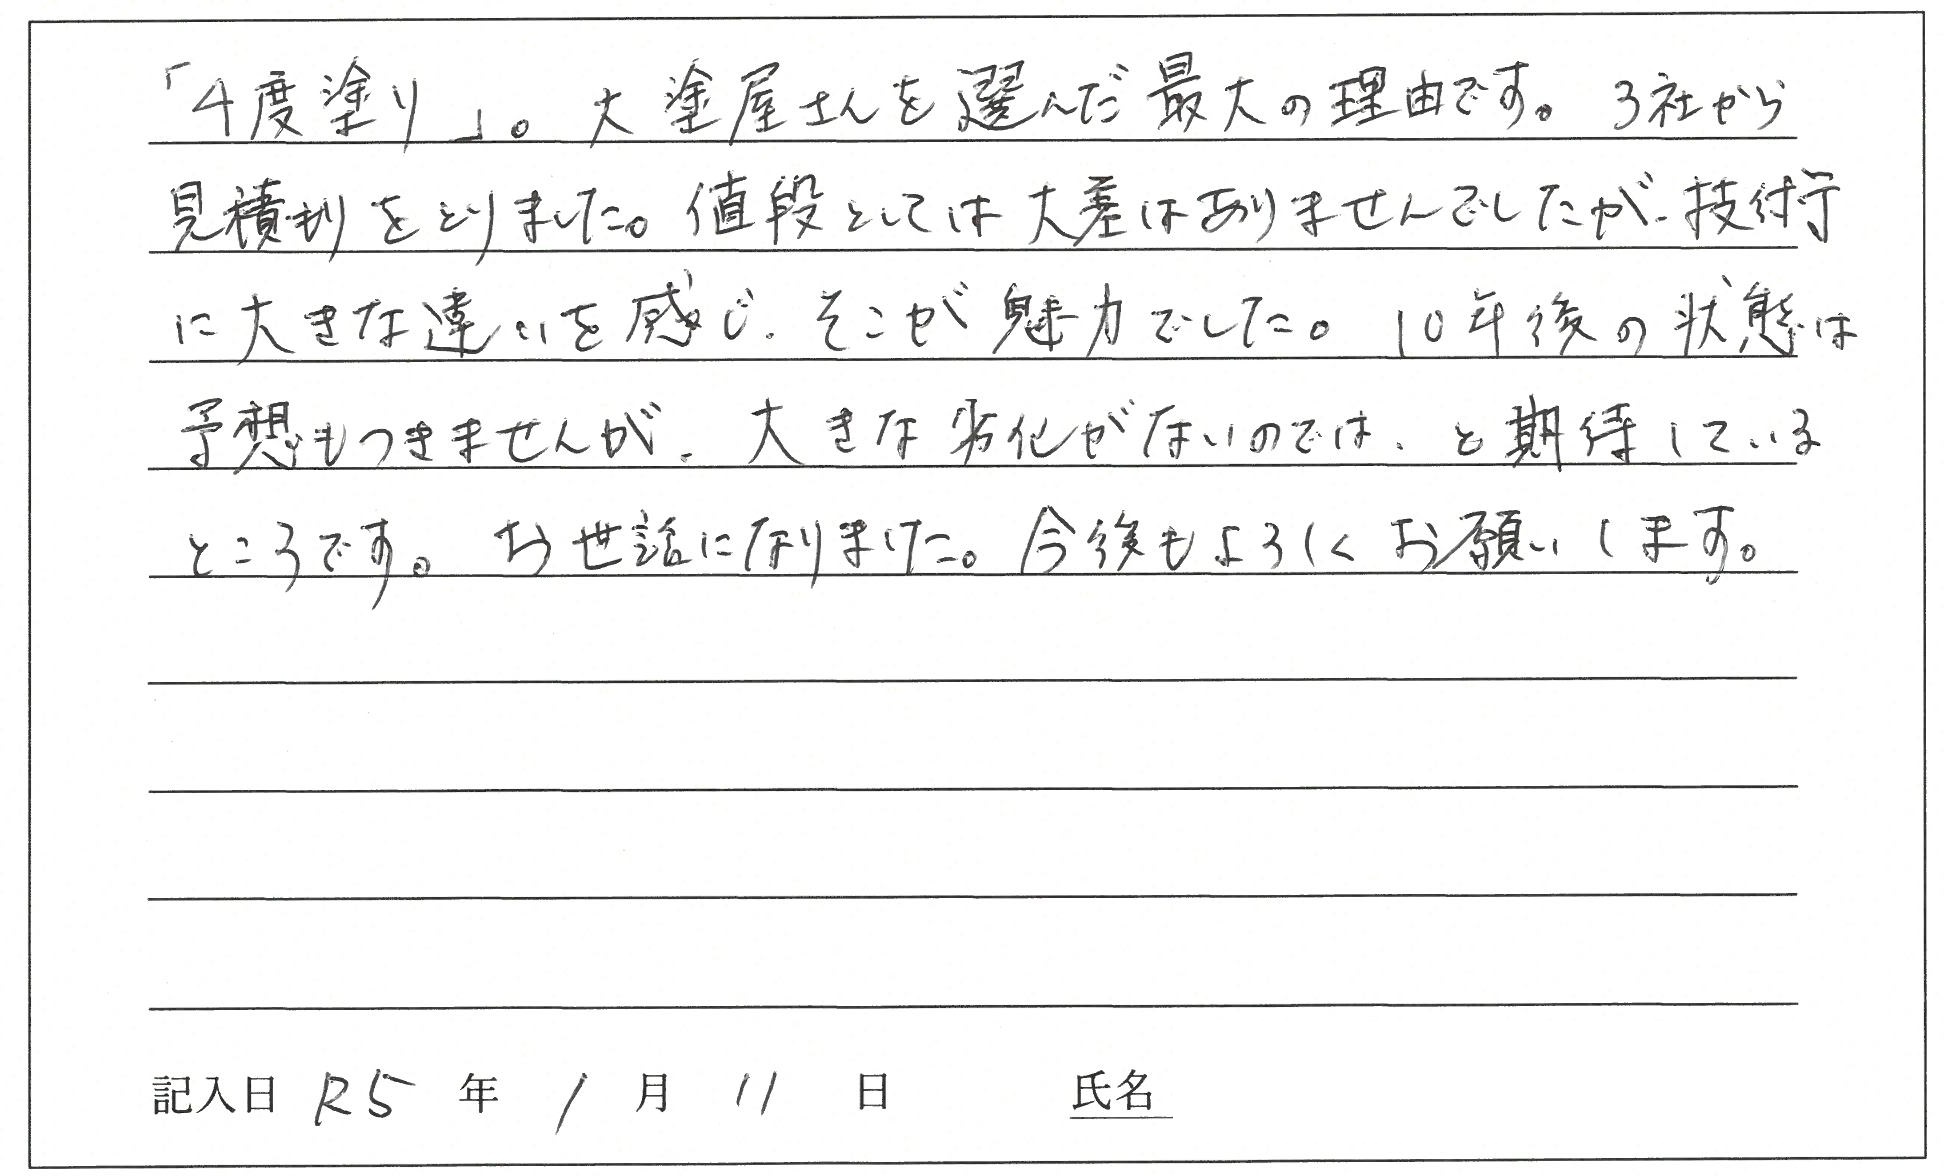 「4度塗り」。大塗屋さんを選んだ最大の理由です。3社から
見積りをとりました。値段としては大差はありませんでしたが、技術
に大きな違いを感じ、そこが魅力でした。10年後の状態は
予想もつきませんが、大きな劣化がないのでは、と期待している
ところです。お世話になりました。今後もよろしくお願いします。
記入日 R5 年 1 月 11 日 氏名